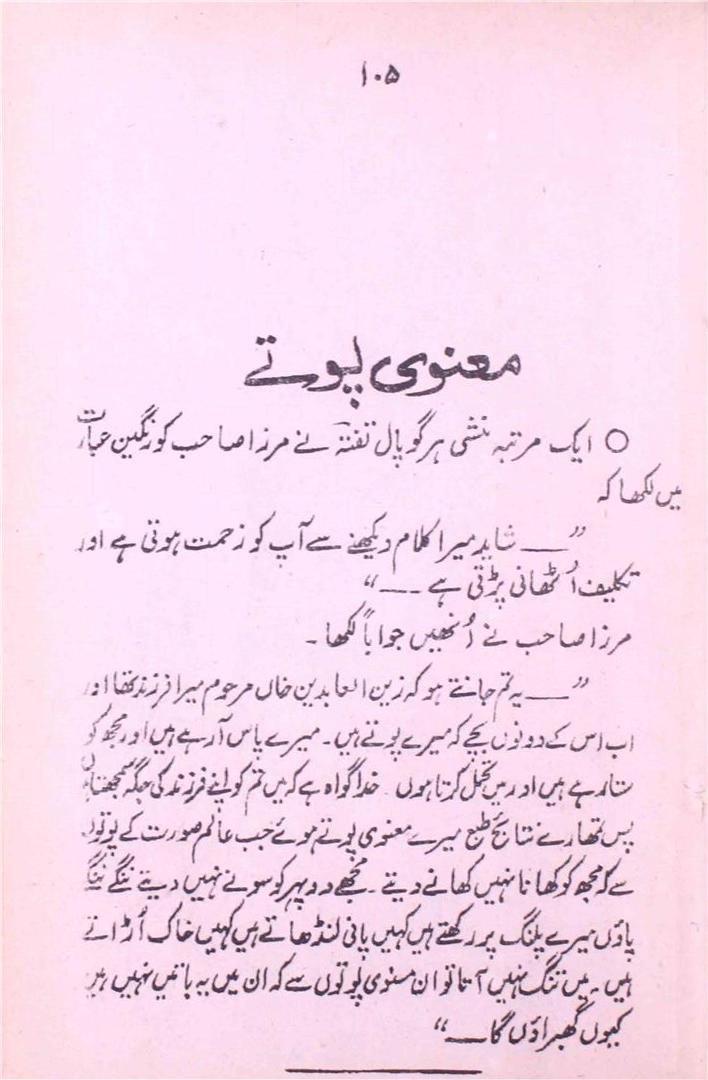 ۱۰۵
معنوی پوتے
○ ایک مرتبہ منشی ہرگوپال تفتہؔ نے مرزا صاحب کو رنگین عبارت
میں لکھا کہ
”— شاید میرا کلام دیکھنے سے آپ کو زحمت ہوتی ہے اور
تکلیف اُٹھانی پڑتی ہے —“
مرزا صاحب نے اُنھیں جواباً لکھا۔
”— یہ تم جانتے ہو کہ زین العابدین خاں مرحوم میرا فرزند تھا اور
اب اس کے دونوں بچے کہ میرے پوتے ہیں۔ میرے پاس آ رہے ہیں اور مجھ کو
ستا رہے ہیں اور میں تحمل کرتا ہوں۔ خدا گواہ ہے کہ میں تم کو اپنے فرزند کی جگہ سمجھتا ہوں
پس تمھارے نتائج طبع میرے معنوی پوتے ہوئے جب عالم صورت کے پوتوں
سے کہ مجھ کو کھانا نہیں کھانے دیتے۔ مجھے دوپہر کو سونے نہیں دیتے ننگے ننگے
پاؤں میرے پلنگ پر رکھتے ہیں کہیں پانی لنڈھاتے ہیں کہیں خاک اُڑاتے
ہیں۔ میں تنگ نہیں آتا تو ان معنوی پوتوں سے کہ ان میں یہ باتیں نہیں ہیں
کیوں گھبراؤں گا —“